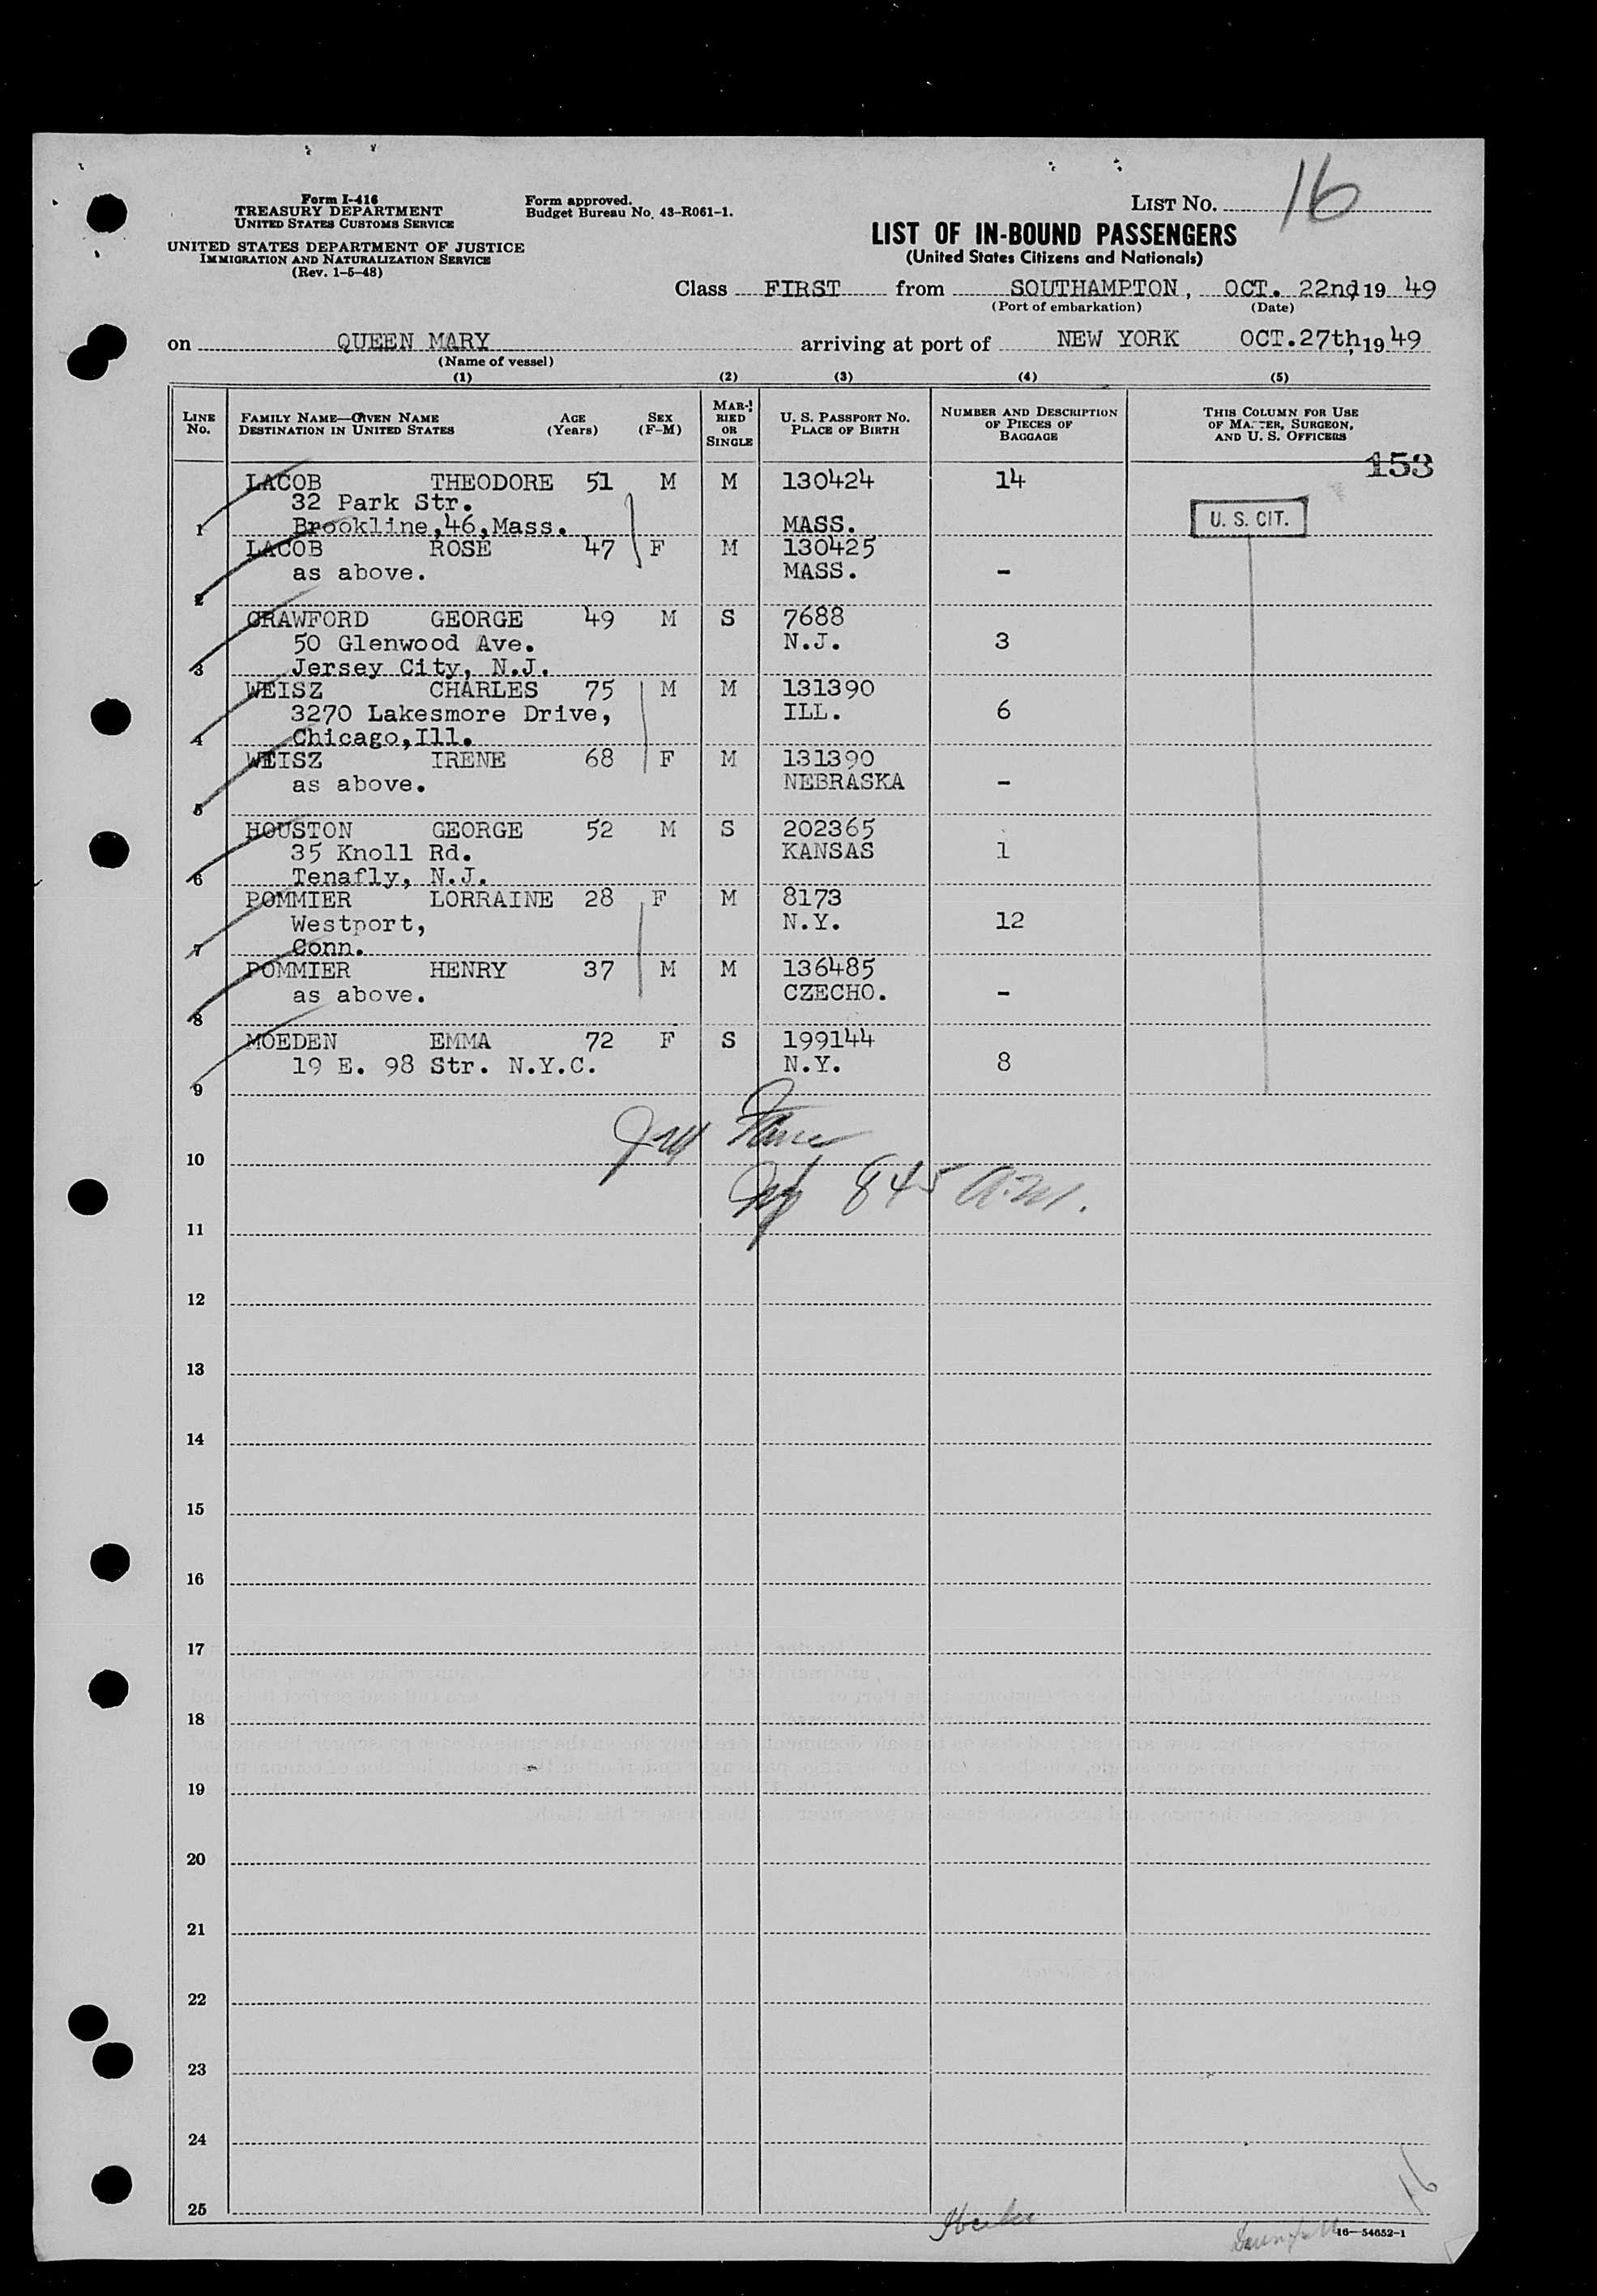 Form I-416
TREASURY DEPARTMENT
UNITED STATES CUSTOMS SERVICE
UNITED STATES DEPARTMENT OF JUSTICE
IMMIGRATION AND NATURALIZATION SERVICE
(Rev. 1-5-48)
Form approved.
Budget Bureau No. 43-R061-1.
LIST No. 16
LIST OF IN-BOUND PASSENGERS
(United States Citizens and Nationals)
Class FIRST from SOUTHAMPTON, OCT. 22nd, 19 49
(Port of embarkation) (Date)
on QUEEN MARY arriving at port of NEW YORK OCT.27th, 19 49
(Name of vessel)
(1) (2) (3) (4) (5)
LINE No. FAMILY NAME—GIVEN NAME DESTINATION IN UNITED STATES AGE (Years) SEX (F-M) MARRIED OR SINGLE U. S. PASSPORT No. PLACE OF BIRTH NUMBER AND DESCRIPTION OF PIECES OF BAGGAGE THIS COLUMN FOR USE OF MASTER, SURGEON, AND U. S. OFFICERS
153
LACOB THEODORE 51 M M 130424 14
32 Park Str.
1 Brookline,46,Mass. MASS. U. S. CIT.
LACOB ROSE 47 F M 130425
as above. MASS. -
2
CRAWFORD GEORGE 49 M S 7688
50 Glenwood Ave. N.J. 3
3 Jersey City, N.J.
WEISZ CHARLES 75 M M 131390
3270 Lakesmore Drive, ILL. 6
4 Chicago,Ill.
WEISZ IRENE 68 F M 131390
as above. NEBRASKA -
5
HOUSTON GEORGE 52 M S 202365
35 Knoll Rd. KANSAS 1
6 Tenafly, N.J.
POMMIER LORRAINE 28 F M 8173
Westport, N.Y. 12
7 Conn.
POMMIER HENRY 37 M M 136485
as above. CZECHO. -
8
MOEDEN EMMA 72 F S 199144
19 E. 98 Str. N.Y.C. N.Y. 8
9
10
845 A.M.
11
12
13
14
15
16
17
18
19
20
21
22
23
24
16
25
16—54652-1